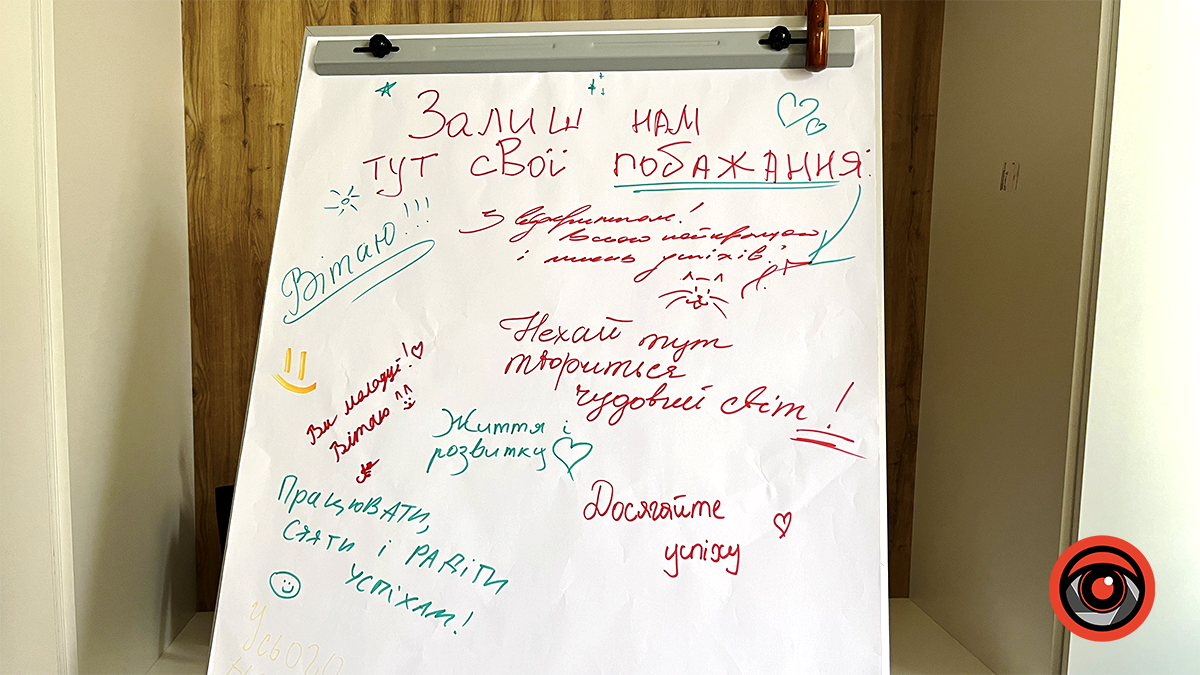 Залиш нам
тут свої побажання:
З відкриттям!
всього найкращого
і тисячь успіхів!
Вітаю!!!
Нехай тут
твориться
чудовий світ!
Ви молодці!
Вітаю ^^
Життя і
розвитку
Працювати,
сяяти і радіти
успіхам!
Досягайте
успіху
Усього